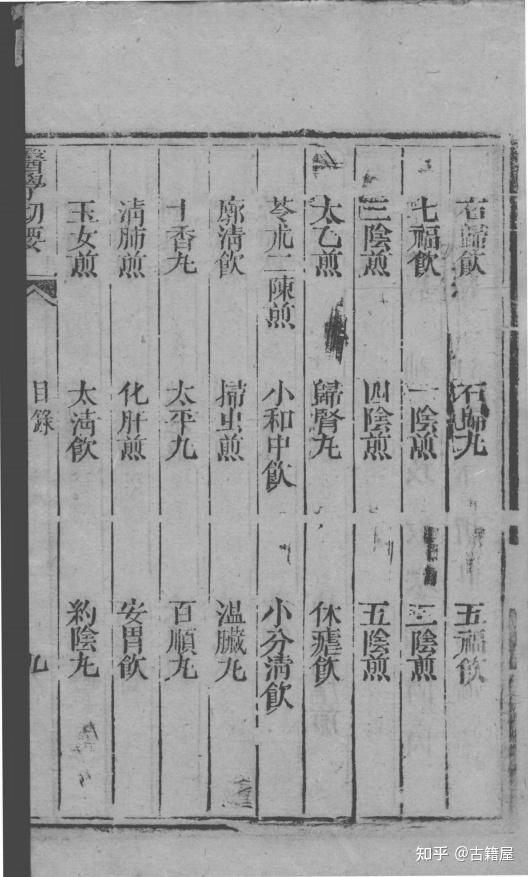 右歸飲　右歸丸　五福飲
七福飲　一陰煎　二陰煎
三陰煎　四陰煎　五陰煎
太乙煎　歸腎丸　休瘧飲
苓朮二陳煎　小和中飲　小分清飲
廓清飲　掃虫煎　溫臟丸
十香丸　太平丸　百順丸
清肺煎　化肝煎　安胃飲
玉女煎　太清飲　約陰丸
醫學切要　目錄　九
知乎 @古籍屋